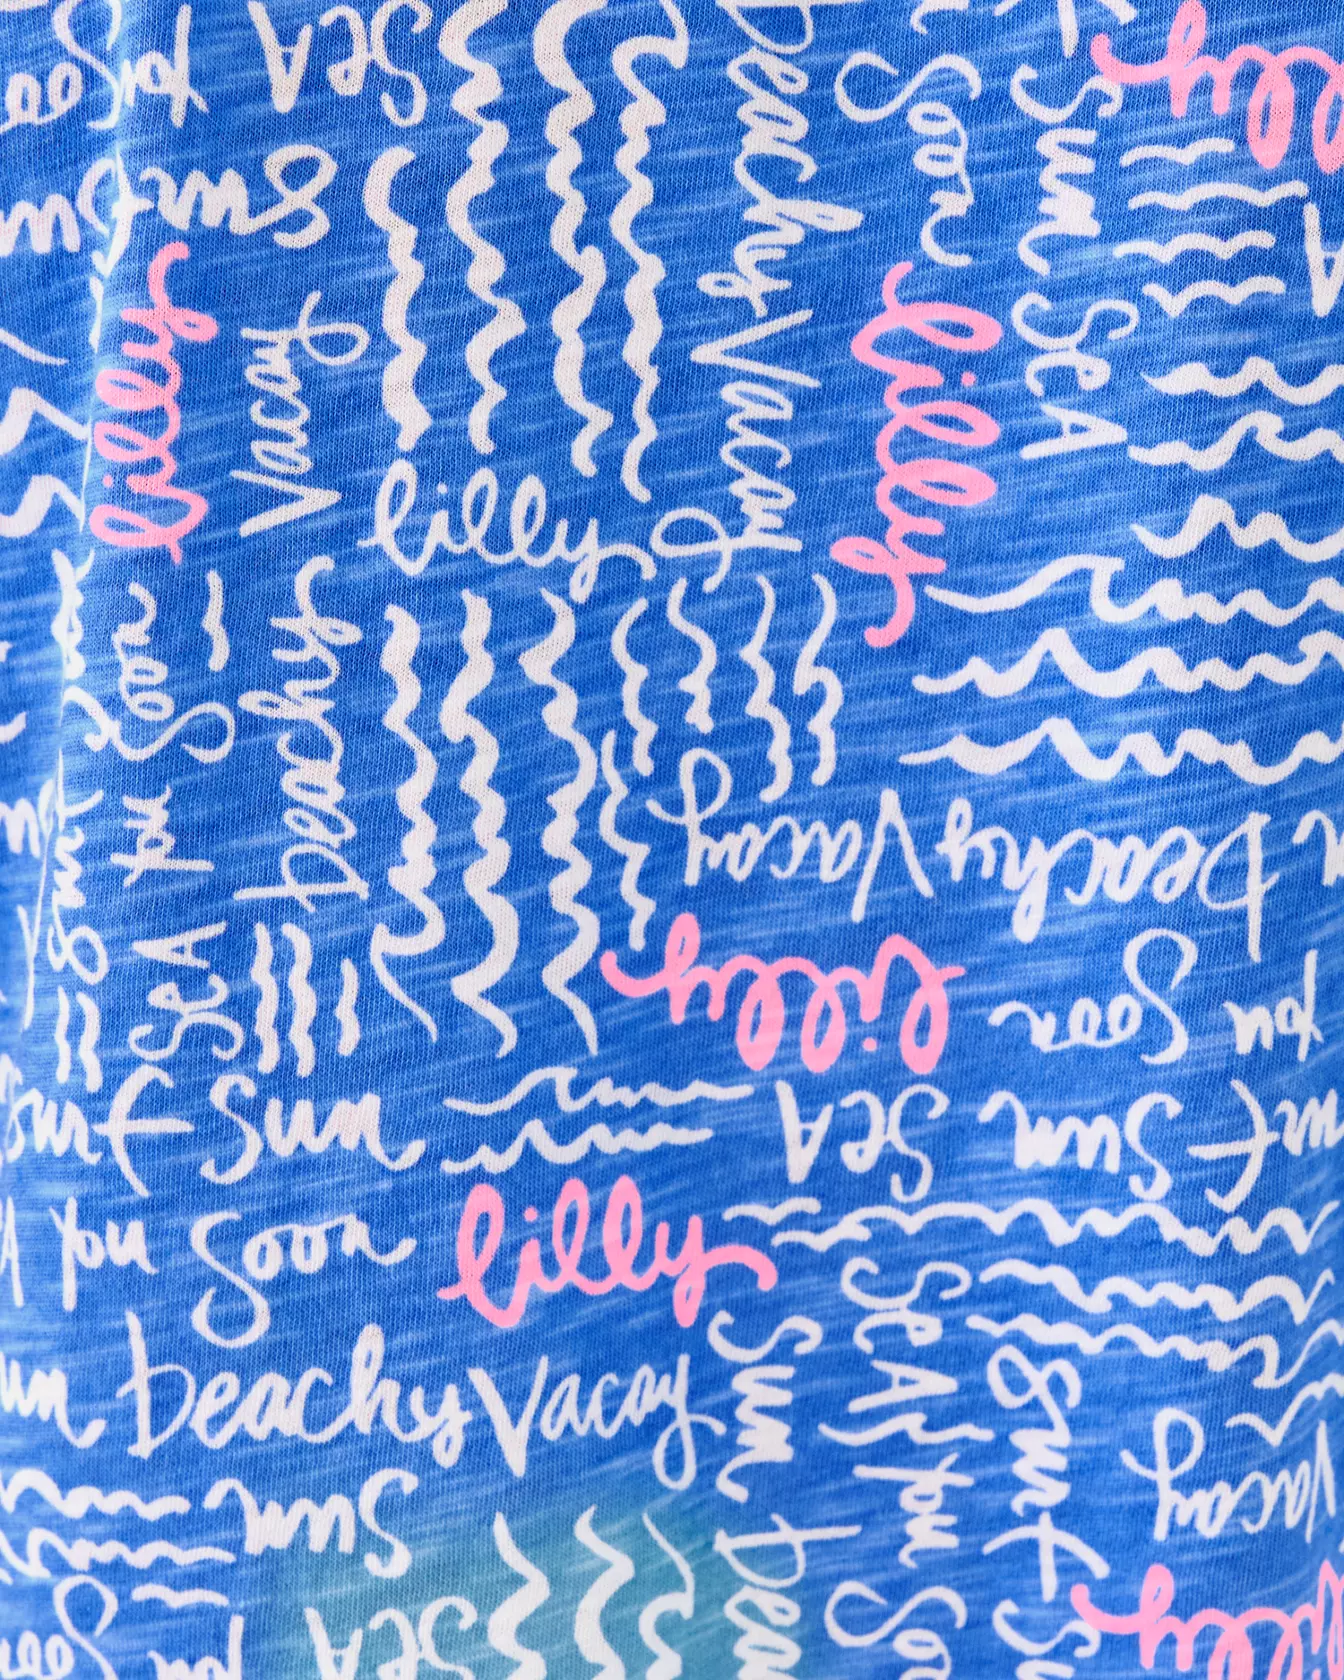 See
you
SEA
Beachy
Soon
Surf
lilly
Sun
Sun
A
Sun
lilly
Vacay
lilly
Vacay
SEA
lilly
Soon
Beachy
Surf
you
SEA
Beachy Vacay
lilly
Soon
you
Surf
Sun
SEA
Sun
Surf
you
Soon
lilly
SEA
Sun
Beachy Vacay
you
Surf
Vacay
Sun
SEA
See
you
lilly